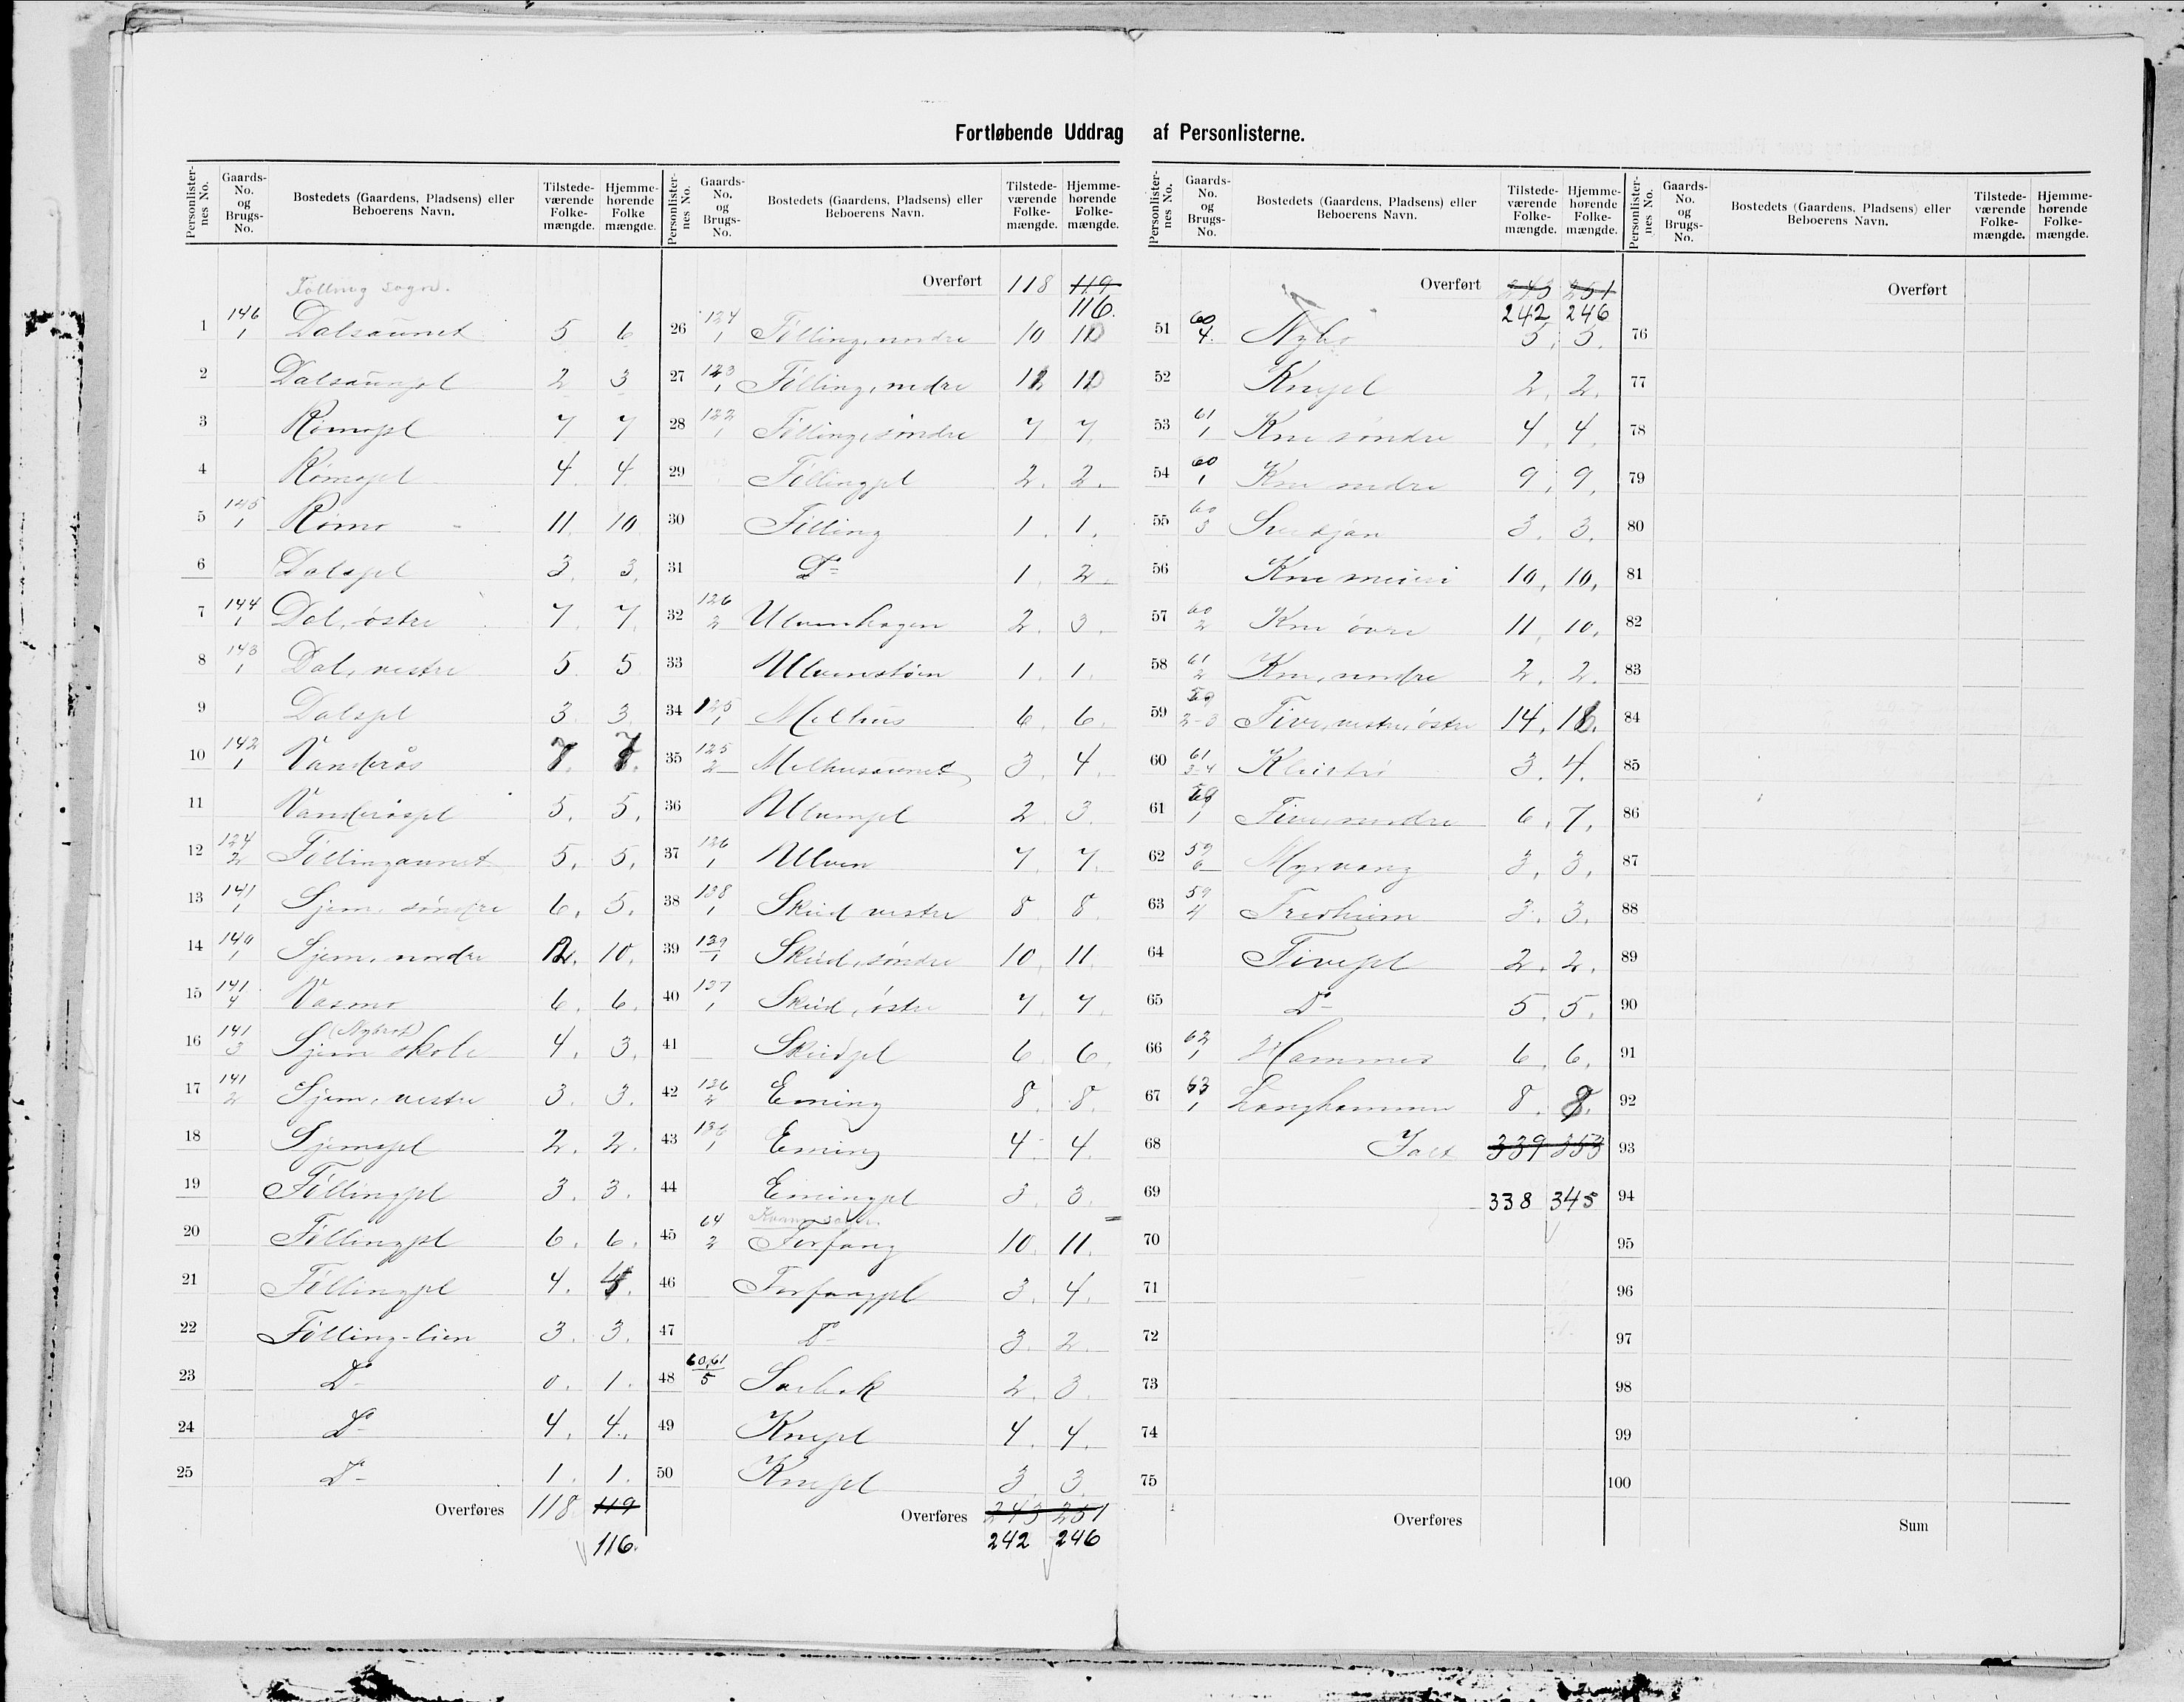 Fortløbende Uddrag af Personlisterne.
Personlister-nes No. Gaards-No. og Brugs-No. Bostedets (Gaardens, Pladsens) eller Beboerens Navn. Tilstede-værende Folke-mængde. Hjemme-hørende Folke mængde.
Følling sogn.
1 146/1 Dalsaunet 5 6
2 Dalsaunpl 2 3
3 Rømopl 7 7
4 Rømopl 4 4
5 145/1 Rømo 11. 10
6 Dalspl 3. 3.
7 144/1 Dal, østre 7. 7.
8 143/1 Dal, vestre 5. 5
9 Dalspl 3. 3.
10 142/1 Vanderås 7. 7.
11 Vanderåspl 5. 5.
12 124/2 Føllingaunet 5. 5.
13 141/1 Sjem, søndre 6. 5.
14 140/1 Sjem, nordre 12. 10.
15 141/4 Vasmo 6. 6.
(Nybrot)
16 141/3 Sjem skole 4. 3.
17 141/2 Sjem, vestre 3. 3.
18 Sjemspl 2. 2.
19 Føllingpl 3. 3.
20 Føllingpl 6. 6.
21 Føllingpl 4. 4.
22 Følling-lien 3. 3.
23 Do 0. 1.
24 Do 4. 4.
25 Do 1. 1.
Overføres 118 119
116.
Personlister-nes No. Gaards-No. og Brugs-No. Bostedets (Gaardens, Pladsens) eller Beboerens Navn. Tilstede-værende Folke-mængde. Hjemme-hørende Folke-mængde.
Overført 118 119
116.
26 124/1 Følling, nordre 10 10
27 123/1 Følling, nedre 12 10
28 122/1 Følling, søndre 7 7.
29 Føllingpl 2. 2.
30 Følling 1. 1.
31 Do 1. 2.
32 126/2 Ulvenhagen 2. 3.
33 Ulvenstøen 1. 1.
34 125/1 Melhus 6. 6.
35 125/2 Melhusaunet 3. 4.
36 Ulvenpl 2. 3.
37 126/1 Ulven 7. 7.
38 138/1 Skeid vestre 8. 8.
39 139/1 Skeid, søndre 10. 11.
40 137/1 Skeid, østre 7. 7.
41 Skeidpl 6. 6.
42 136/2 Emning 8. 8.
43 136/1 Emning 4. 4.
44 Emningpl 3. 3.
Kvams sogn.
45 64/2 Forfang 10. 11.
46 Forfangpl 3. 4.
47 Do 3. 2.
48 60,61/5 2. 3.
49 Knepl 4. 4.
50 Knepl 3. 3.
Overføres 243 251
242 246
Personlister-nes No. Gaards-No. og Brugs-No. Bostedets (Gaardens, Pladsens) eller Beboerens Navn. Tilstede-værende Folke-mængde. Hjemme-hørende Folke-mængde.
Overført 243 251
242 246
51 60/4. Nybo 5. 5.
52 Knepl 2. 2.
53 61/1 Kne søndre 4. 4.
54 60/1 Kne nedre 9. 9.
55 60/3 3. 3.
56 Kne meieri 10. 10.
57 60/2 Kne øvre 11. 10.
58 61/2 Kne, nordre 2. 2.
59 59/2-3 Five, vestre, østre 14. 16.
60 61/3-4 3. 4.
61 59/1 Five, nordre 6. 7.
62 59/6 Myrvang 3. 3.
63 59/4 Fredheim 3. 3.
64 Fivepl 2. 2.
65 Do 5. 5.
66 62/1 Hammer 6. 6.
67 63/1 Langhammer 8. 8.
68 Ialt 339 353
69 338 345
70
71
72
73
74
75
Overføres
Personlister-nes No. Gaards-No. og Brugs-No. Bostedets (Gaardens, Pladsens) eller Beboerens Navn. Tilstede-værende Folke-mængde. Hjemme-hørende Folke-mængde.
Overført
76
77
78
79
80
81
82
83
84
85
86
87
88
89
90
91
92
93
94
95
96
97
98
99
100
Sum